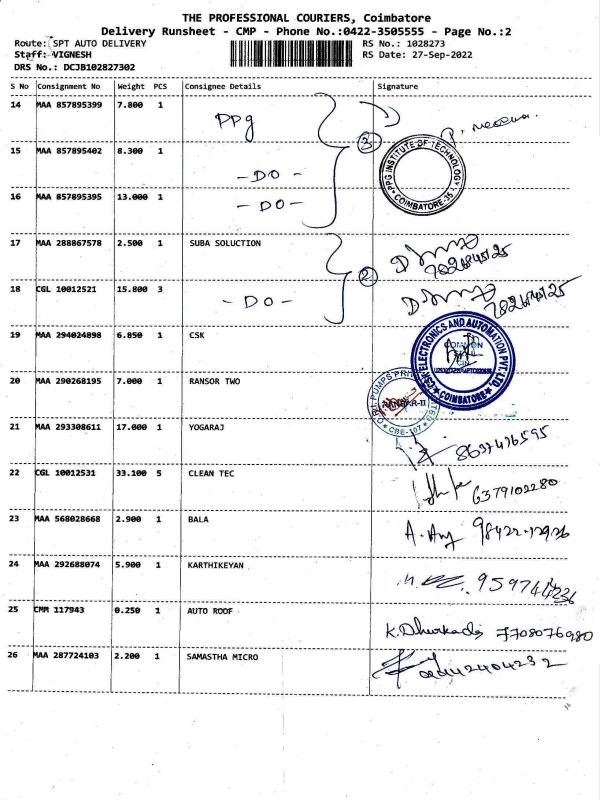 THE PROFESSIONAL COURIERS, Coimbatore
Delivery Runsheet - CMP - Phone No.:0422-3505555 - Page No.:2
Route: SPT AUTO DELIVERY RS No.: 1028273
Staff: VIGNESH RS Date: 27-Sep-2022
DRS No.: DCJB102827302
S No Consignment No Weight PCS Consignee Details Signature
14 MAA 857895399 7.800 1 PPg
3
15 MAA 857895402 8.300 1 - DO -
PPG INSTITUTE OF TECHNOLOGY * COIMBATORE-35 *
16 MAA 857895395 13.000 1 - DO -
17 MAA 288867578 2.500 1 SUBA SOLUCTION
2
18 CGL 10012521 15.800 3 - DO -
19 MAA 294024898 6.850 1 CSK
CSK ELECTRONICS AND AUTOMATION PVT. LTD * COIMBATORE *
20 MAA 290268195 7.000 1 RANSOR TWO
CBE-107
21 MAA 293308611 17.000 1 YOGARAJ 8637476595
22 CGL 10012531 33.100 5 CLEAN TEC 6379102280
23 MAA 568028668 2.900 1 BALA
24 MAA 292688074 5.900 1 KARTHIKEYAN
25 CMM 117943 0.250 1 AUTO ROOF 7708076980
26 MAA 287724103 2.200 1 SAMASTHA MICRO